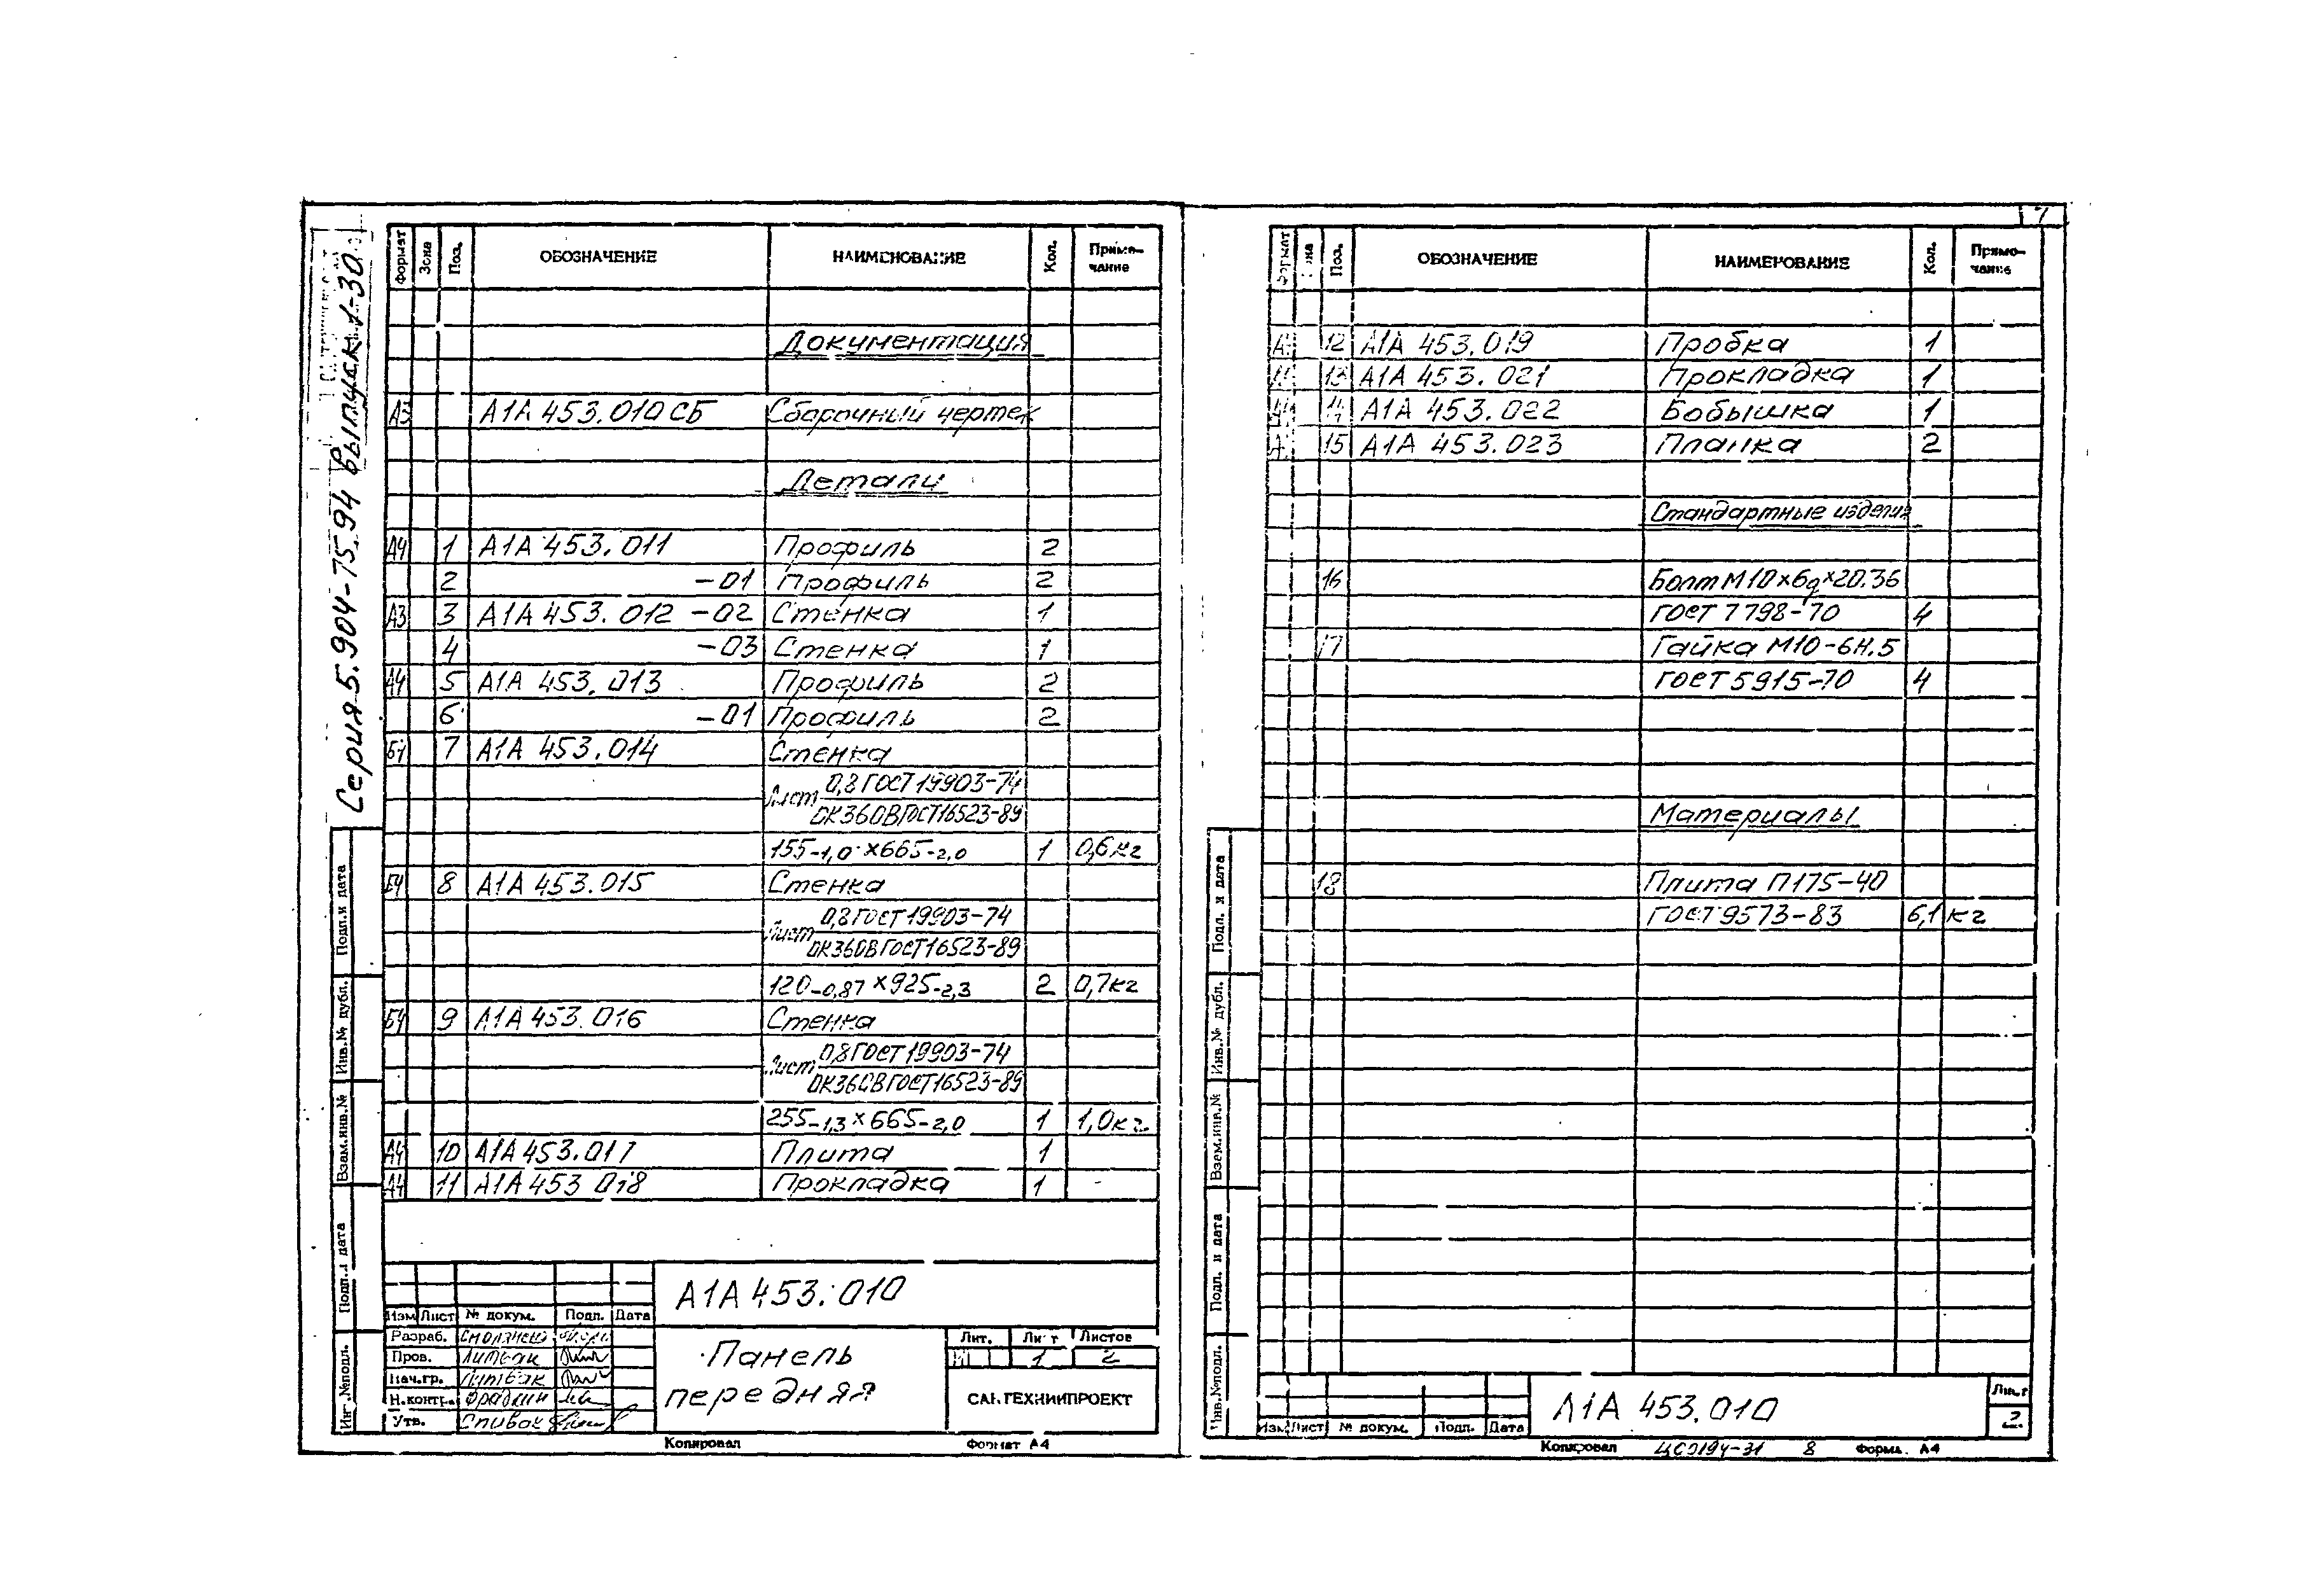 Серия 5.904-75.94 выпуск 1-30
Формат Зона Поз. ОБОЗНАЧЕНИЕ НАИМЕНОВАНИЕ Кол. Приме-
чание
Документация
А3 А1А 453.010 СБ Сборочный чертеж
Детали
А4 1 А1А 453.011 Профиль 2
2 -01 Профиль 2
А3 3 А1А 453.012 -02 Стенка 1
4 -03 Стенка 1
А4 5 А1А 453.013 Профиль 2
6 -01 Профиль 2
БЧ 7 А1А 453.014 Стенка
Лист 0,8 ГОСТ 19903-74
ОК360В ГОСТ 16523-89
155-1,0 × 665-2,0 1 0,6 кг
БЧ 8 А1А 453.015 Стенка
Лист 0,8 ГОСТ 19903-74
ОК360В ГОСТ 16523-89
120-0,87 × 925-2,3 2 0,7 кг
БЧ 9 А1А 453.016 Стенка
Лист 0,8 ГОСТ 19903-74
ОК360В ГОСТ 16523-89
255-1,3 × 665-2,0 1 1,0 кг
А4 10 А1А 453.017 Плита 1
А4 11 А1А 453.018 Прокладка 1
Подп. и дата
Инв.№ дубл.
Взам.инв.№
Подп. и дата
Инв.№подл.
А1А 453.010
Изм Лист № докум. Подп. Дата
Разраб.
Пров. Литвак
Нач.гр. Литвак
Н.контр. Фрадкин
Утв. Спивак
Панель
передняя
Лит. Лист Листов
1 2
САНТЕХНИИПРОЕКТ
Копировал Формат А4
7
Формат Зона Поз. ОБОЗНАЧЕНИЕ НАИМЕНОВАНИЕ Кол. Приме-
чание
12 А1А 453.019 Пробка 1
13 А1А 453.021 Прокладка 1
14 А1А 453.022 Бобышка 1
15 А1А 453.023 Планка 2
Стандартные изделия
16 Болт М10×6g×20.36
ГОСТ 7798-70 4
17 Гайка М10-6Н.5
ГОСТ 5915-70 4
Материалы
18 Плита П175-40
ГОСТ 9573-83 6,1 кг
Подп. и дата
Инв.№ дубл.
Взам.инв.№
Подп. и дата
Инв.№подл.
Изм Лист № докум. Подп. Дата
А1А 453.010
Лист
2
Копировал ЦС0194-31 8 Формат А4